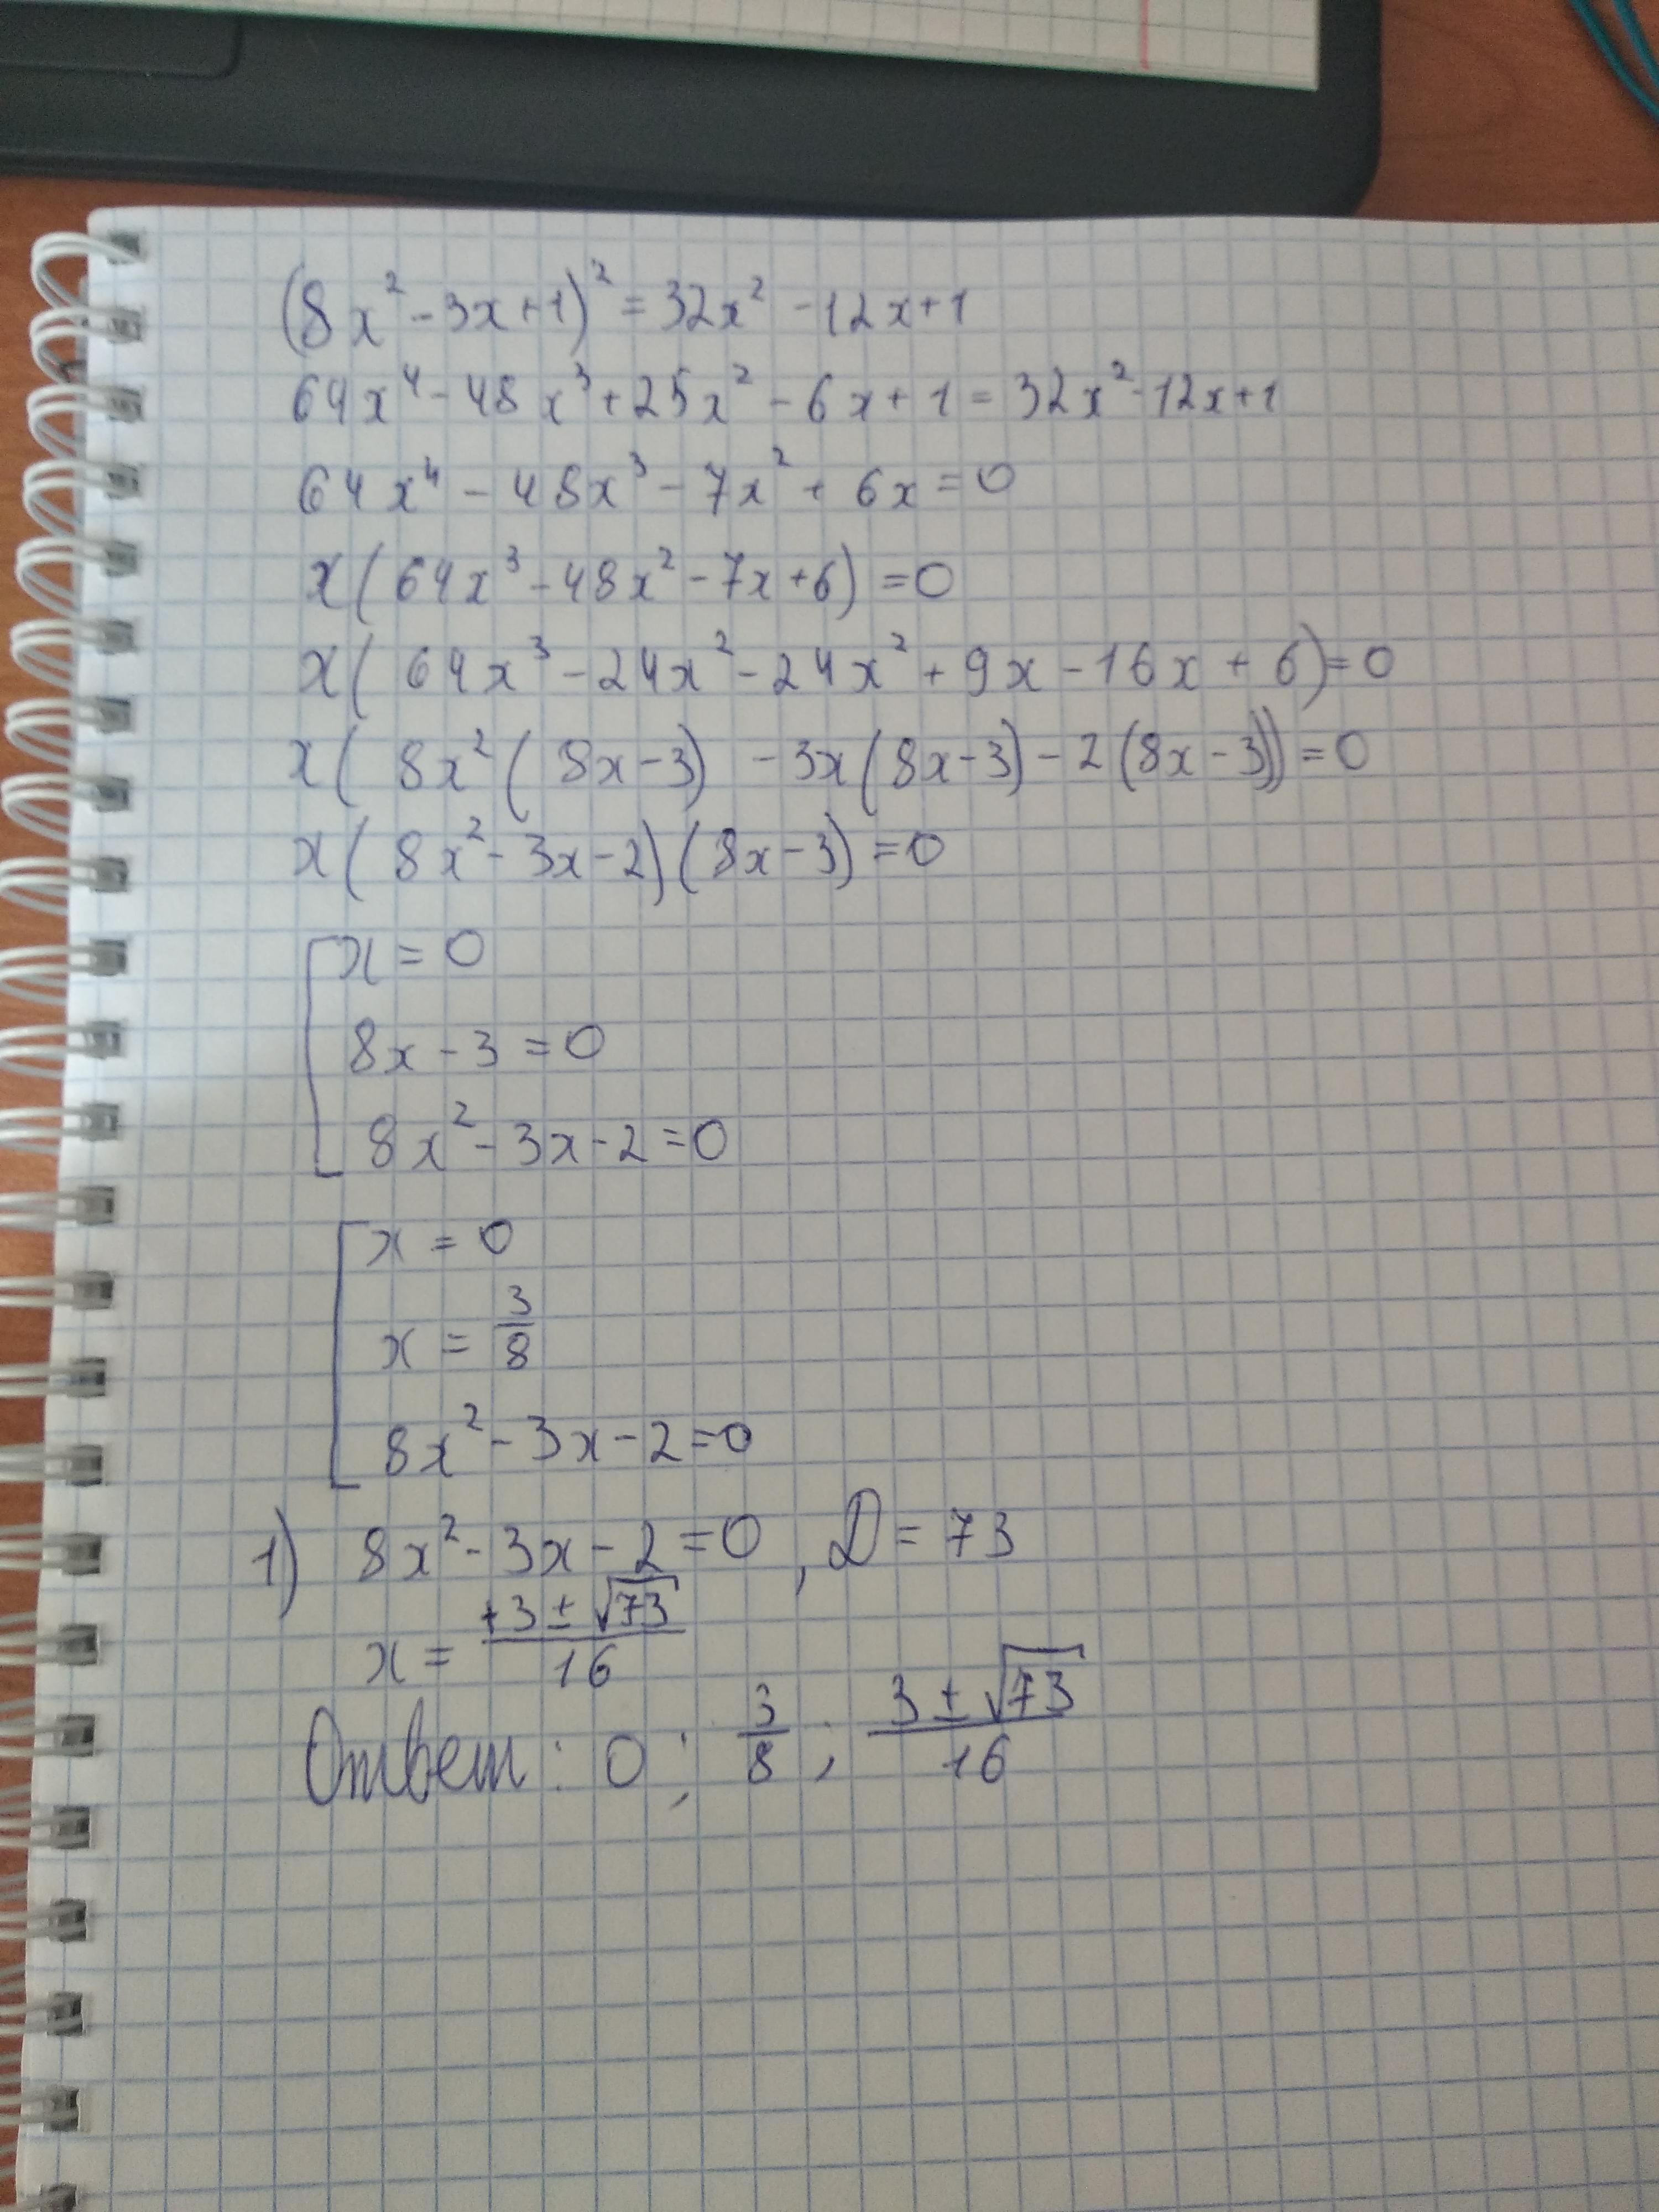 (8x² - 3x + 1)² = 32x² - 12x + 1
64x⁴ - 48x³ + 25x² - 6x + 1 = 32x² - 12x + 1
64x⁴ - 48x³ - 7x² + 6x = 0
x(64x³ - 48x² - 7x + 6) = 0
x(64x³ - 24x² - 24x² + 9x - 16x + 6) = 0
x(8x²(8x - 3) - 3x(8x - 3) - 2(8x - 3)) = 0
x(8x² - 3x - 2)(8x - 3) = 0
[ x = 0
8x - 3 = 0
8x² - 3x - 2 = 0
[ x = 0
x = 3/8
8x² - 3x - 2 = 0
1) 8x² - 3x - 2 = 0, D = 73
x = (+3 ± √73)/16
Ответ: 0; 3/8; (3 ± √73)/16